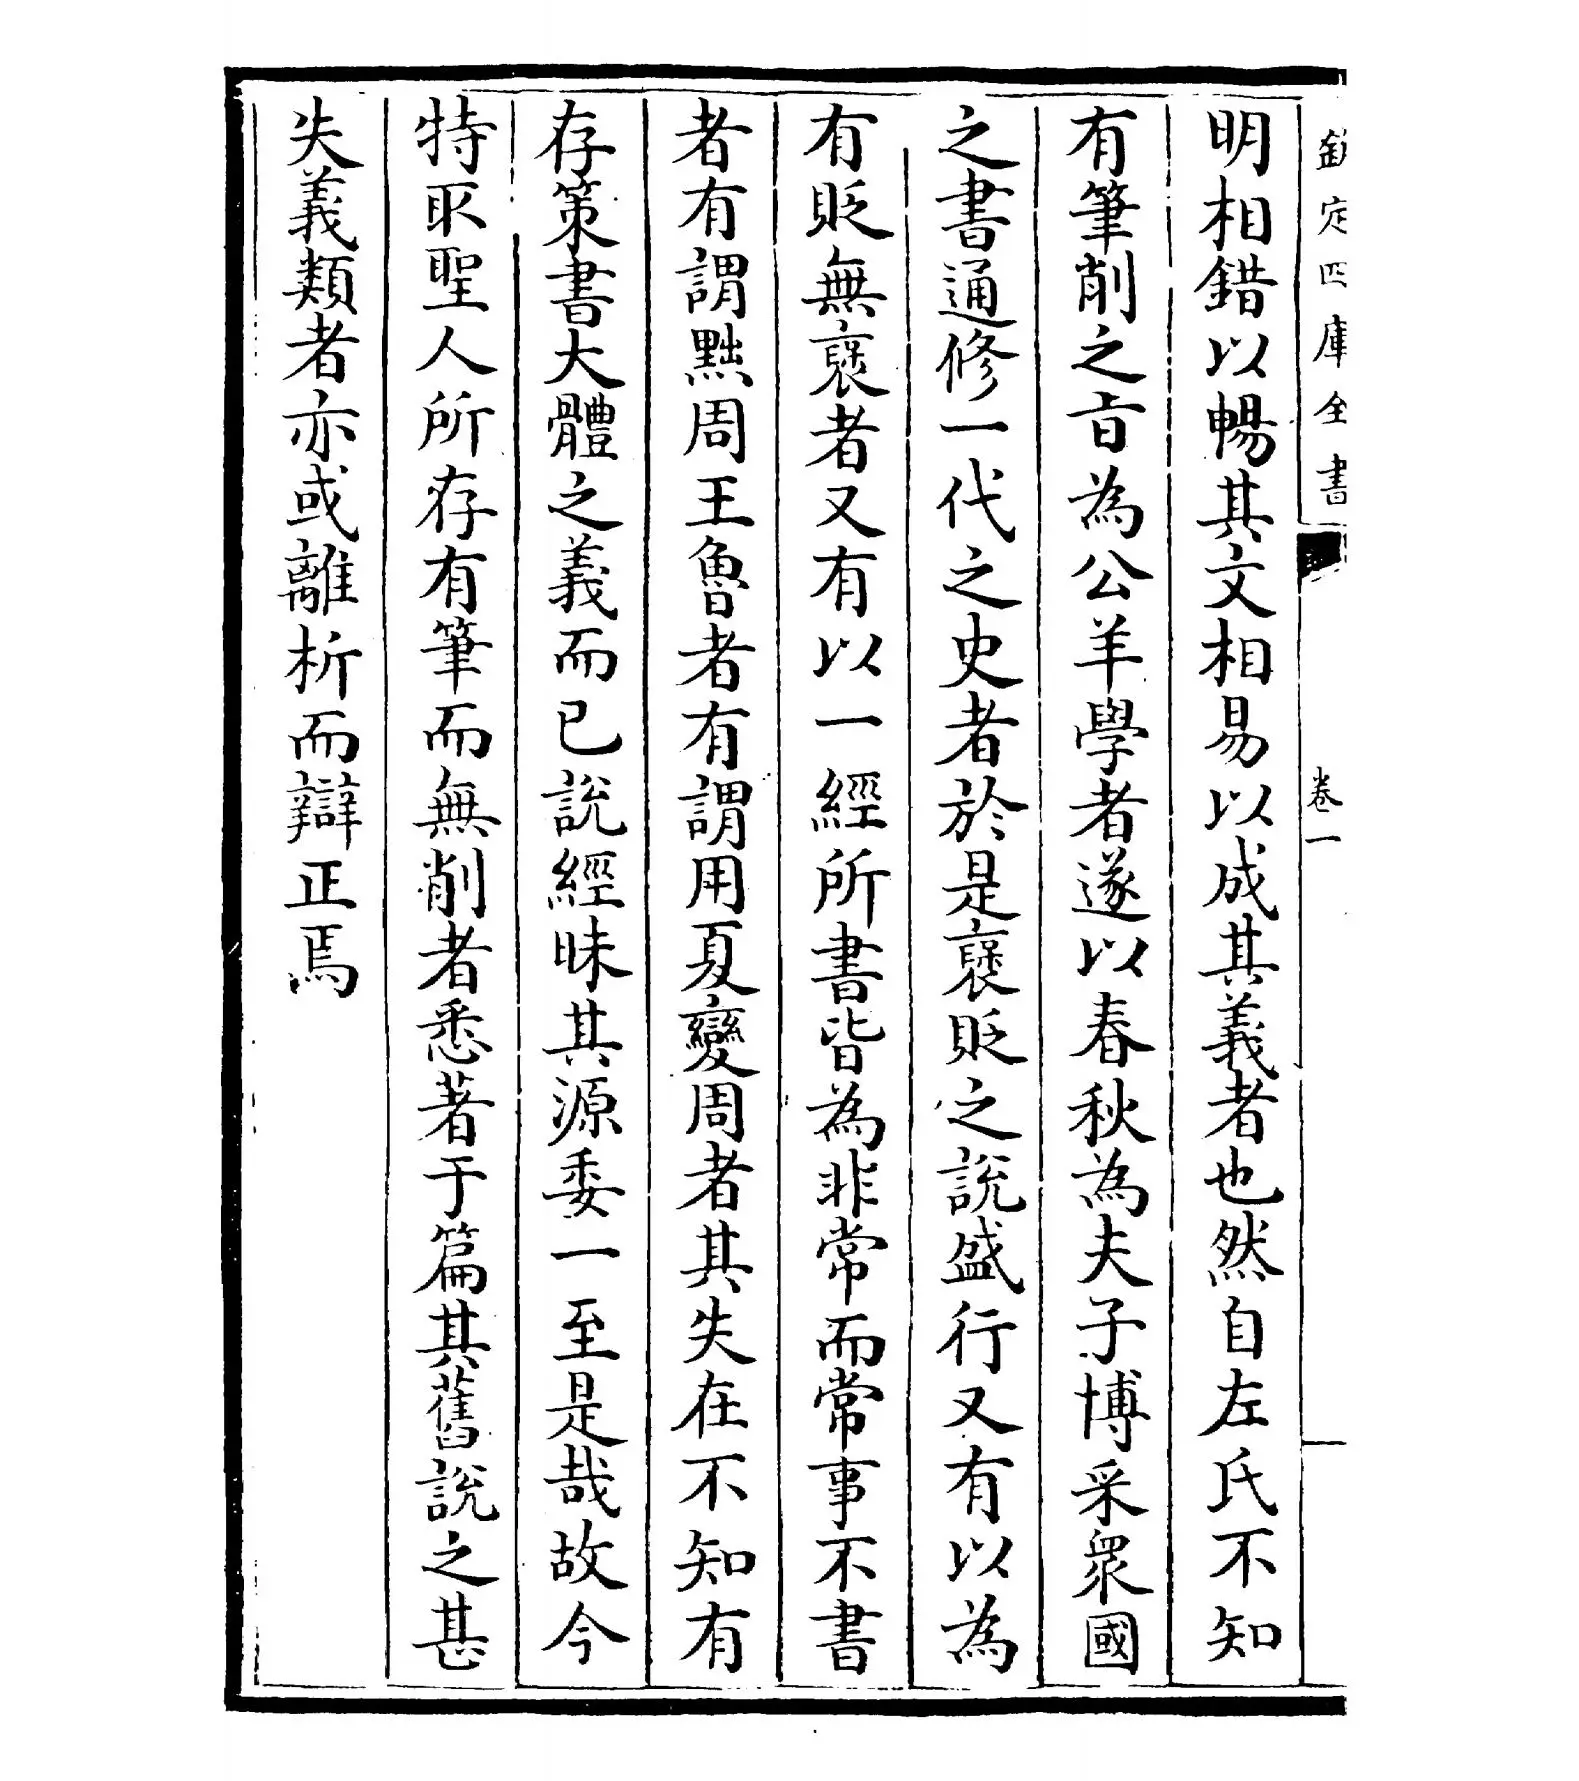 欽定四庫全書
卷一
明相錯以暢其文相易以成其義者也然自左氏不知
有筆削之㫖為公羊學者遂以春秋為夫子博采衆國
之書通修一代之史者於是襃貶之說盛行又有以為
有貶無襃者又有以一經所書皆為非常而常事不書
者有謂黜周王魯者有謂用夏變周者其失在不知有
存策書大體之義而已說經昧其源委一至是哉故今
特取聖人所存有筆而無削者悉著于篇其舊說之甚
失義類者亦或離析而辯正焉